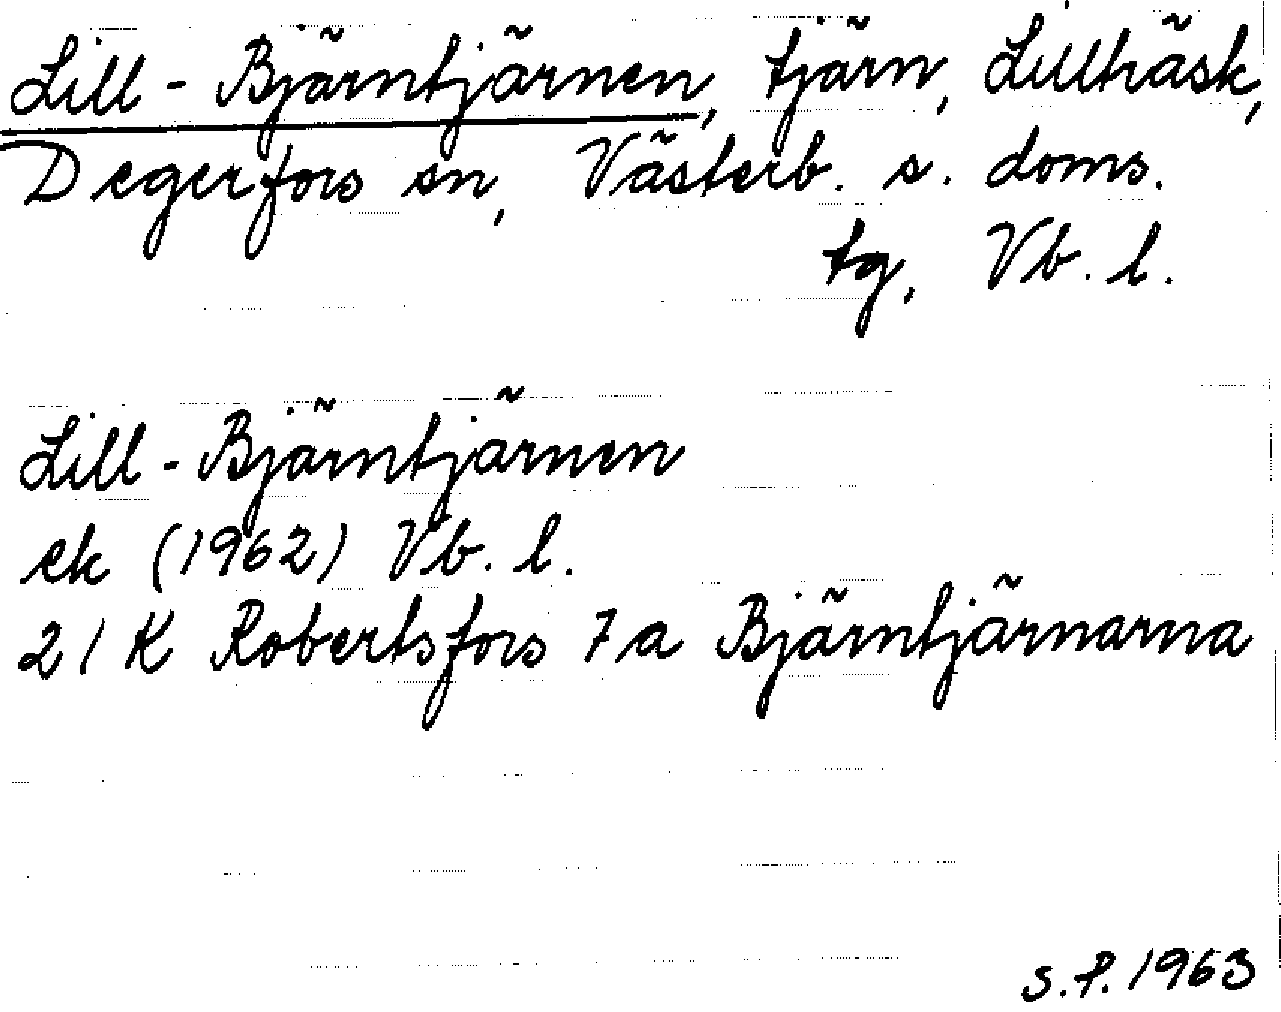 Lill-Bjärntjärnen, tjärn, Lillträsk,
Degerfors sn, Västerb. s. doms.
tg, Vb. l.
Lill-Bjärntjärnen
ek (1962) Vb. l.
21 K Robertsfors 7 a Bjärntjärnarna
S.P. 1963